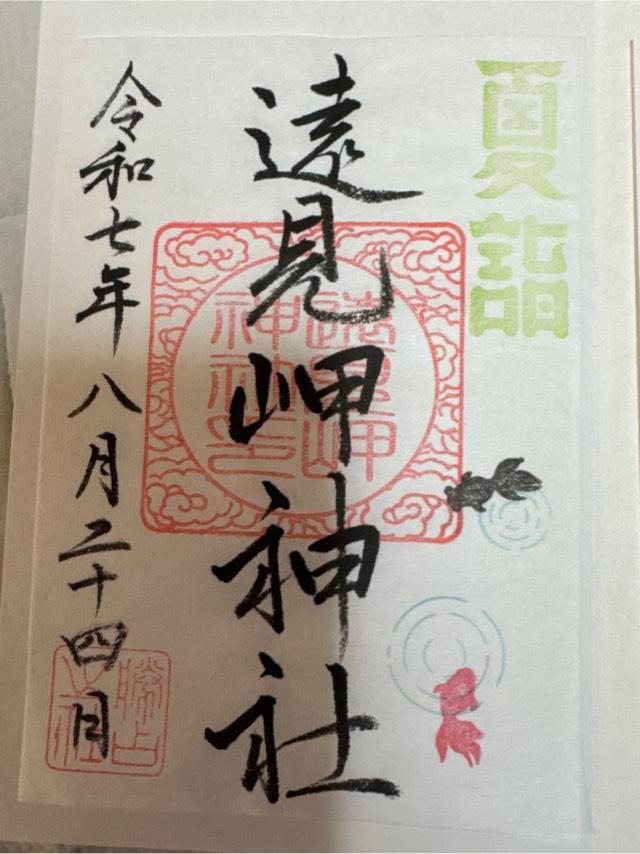 夏詣
遠見岬神社
遠見岬
神社印
令和七年八月二十四日